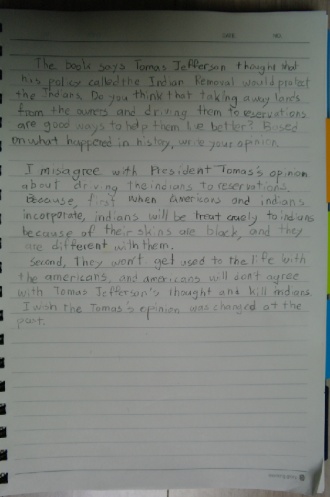 DATE NO.
The book says Tomas Jefferson thought that
his policy called the Indian Removal would protect
the Indians. Do you think that taking away lands
from the owners and driving them to reservations
are good ways to help them live better? Based
on what happened in history, write your opinion.
I misagree with President Tomas's opinion
about driving the indians to reservations.
Because, first when Americans and indians
incorporate, indians will be treat cruely to indians
because of their skins are black, and they
are different with them.
Second, They won't get used to the life with
the americans, and americans will don't agree
with Tomas Jefferson's thought and kill indians.
I wish the Tomas's opinion was changed at the
past.